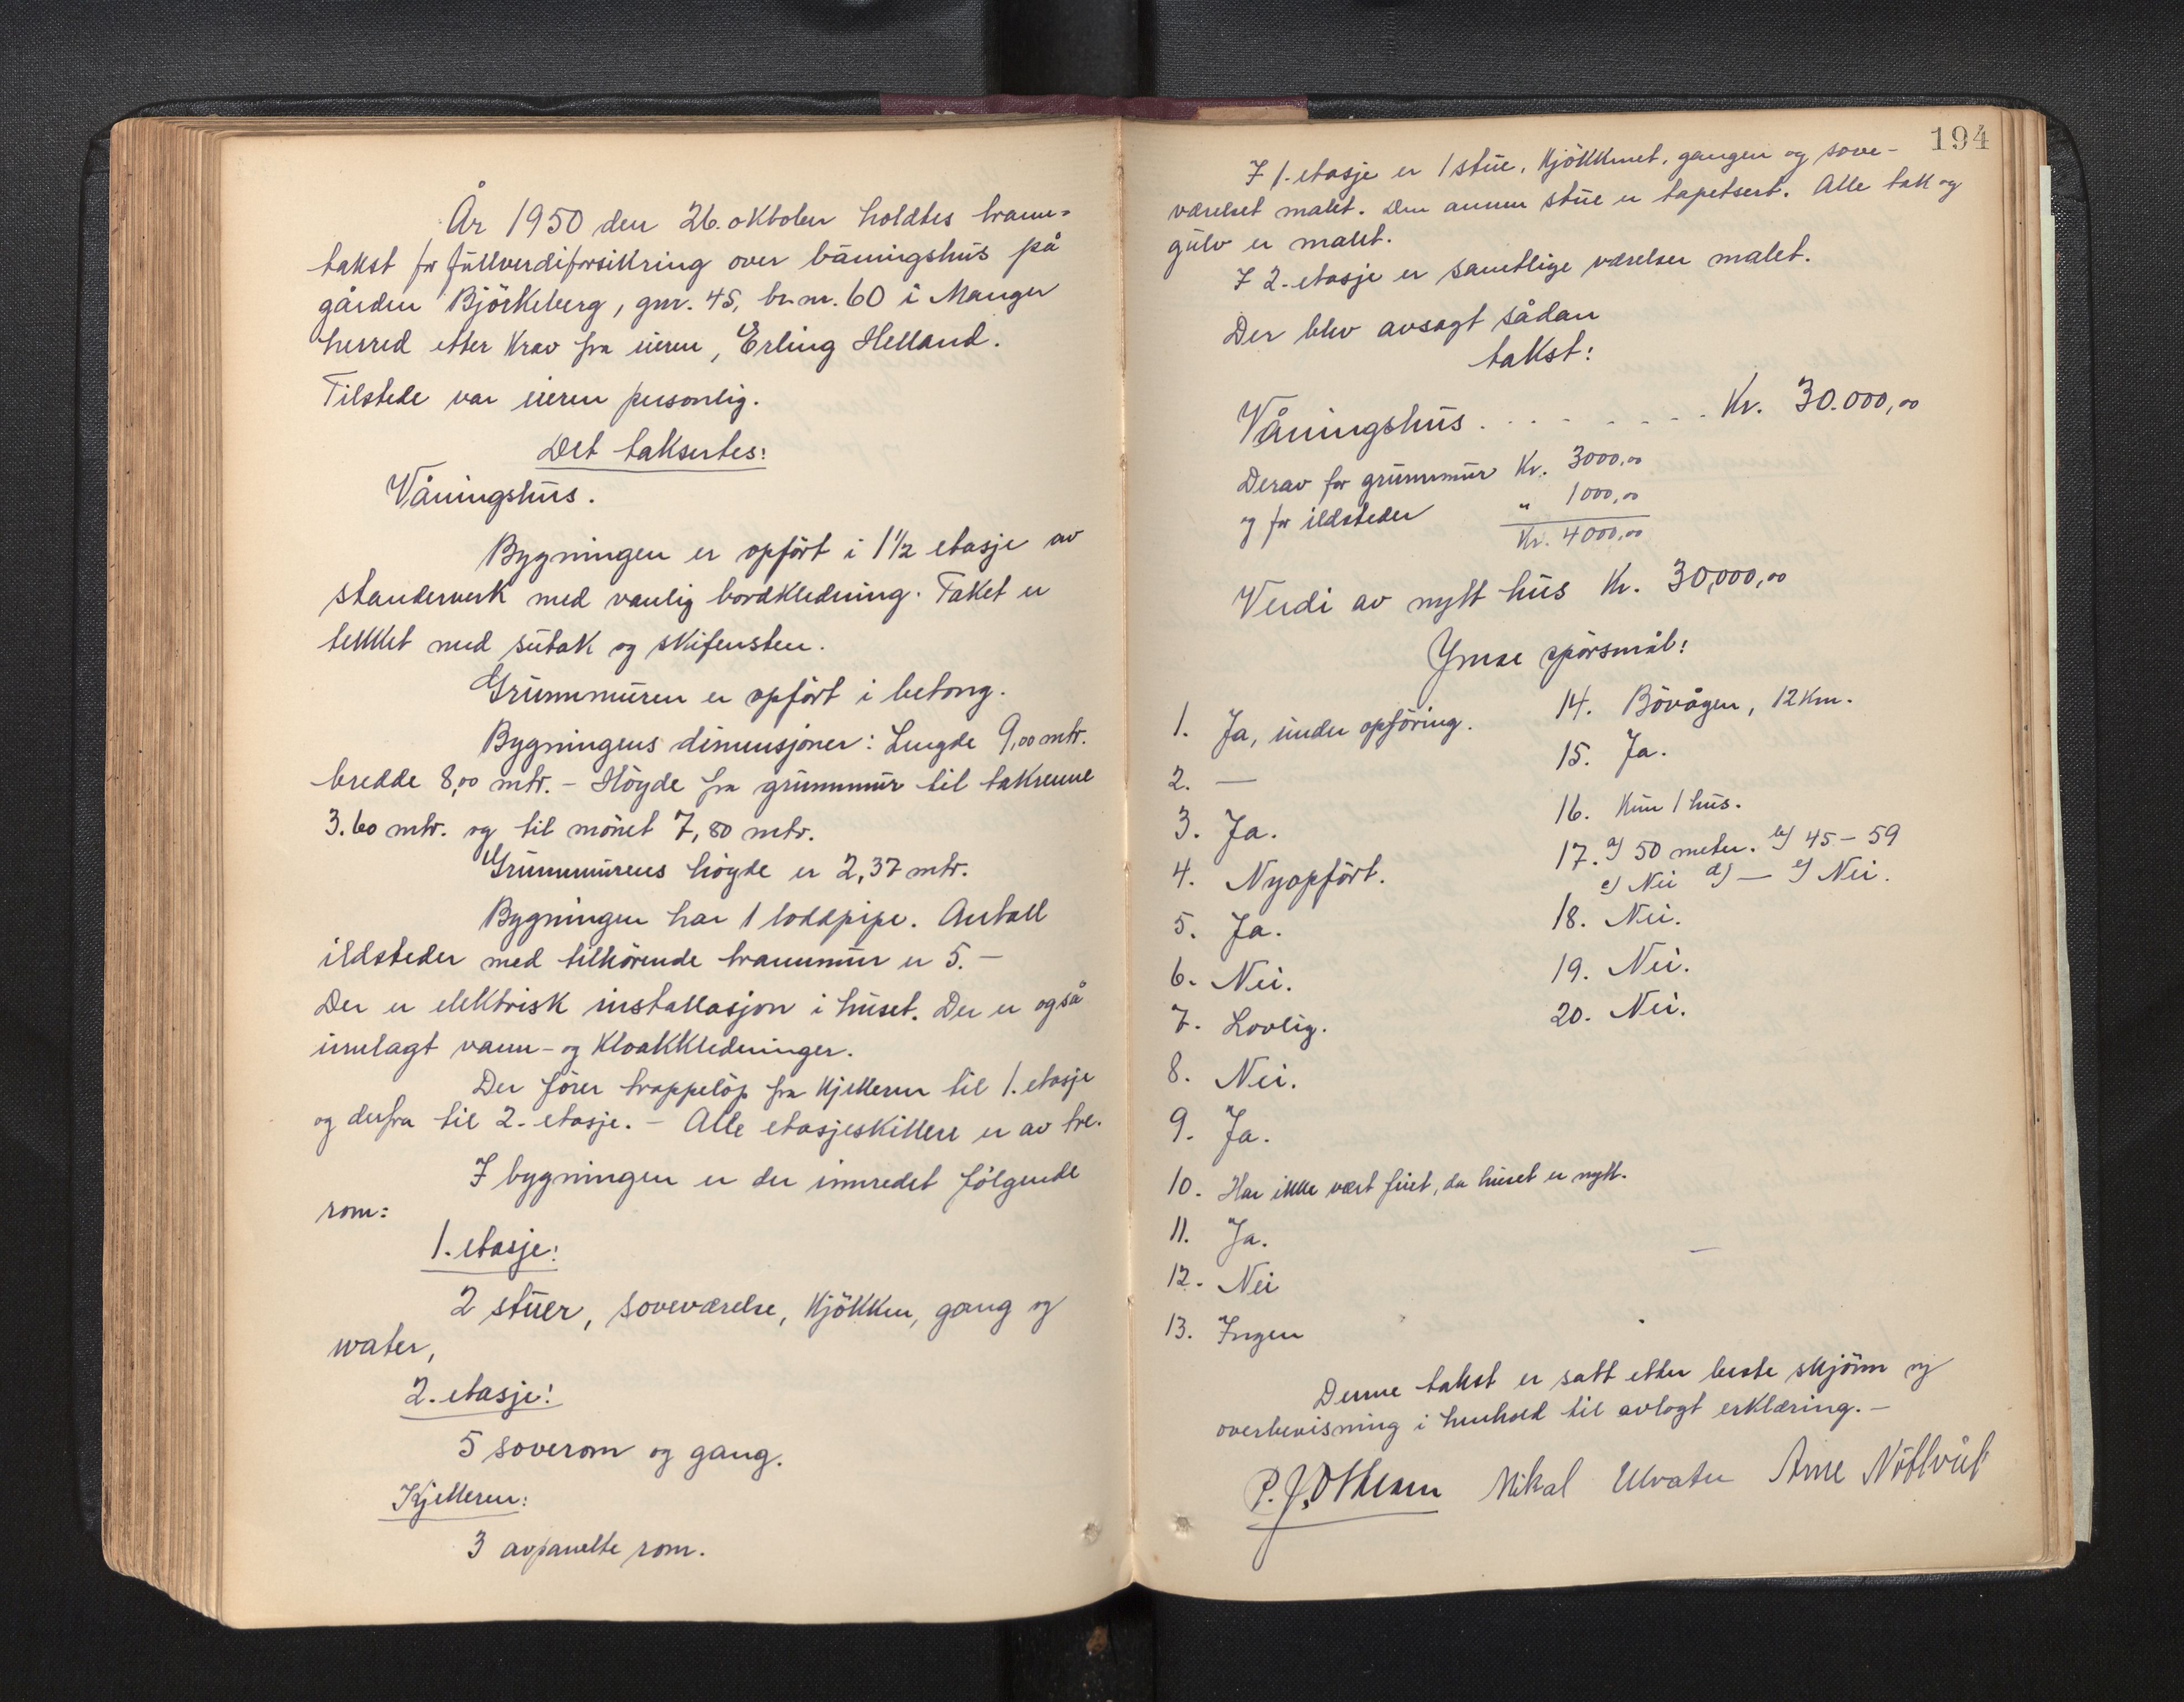 År 1950 den 26. oktober holdtes brann-
takst for fullverdiforsikring over våningshus på
gården Björkeberg, gnr. 45, br.nr. 60 i Manger
herred etter krav fra eieren, Erling Helland.
Tilstede var eieren personlig.
Det taksertes:
Våningshus.
Bygningen er opfört i 1 1/2 etasje av
standerverk med vanlig bordkledning. Taket er
tekket med sutak og skifersten.
Grunnmuren er opfört i betong.
Bygningens dimensjoner: Lengde 9,00 mtr.
bredde 8,00 mtr. - Höyde fra grunnmur til takrenne
3.60 mtr. og til mönet 7,80 mtr.
Grunnmurens höyde er 2,37 mtr.
Bygningen har 1 loddpipe. Antall
ildsteder med tilhörende brannmur er 5. -
Der er elektrisk installasjon i huset. Der er også
innlagt vann- og kloakkledninger.
Der förer trappelöp fra kjelleren til 1. etasje
og derfra til 2. etasje. - Alle etasjeskillere er av tre.
I bygningen er der innredet fölgende
rom:
1. etasje:
2 stuer, soveværelse, kjökken, gang og
water,
2. etasje:
5 soverom og gang.
Kjelleren:
3 avpanelte rom.
194
I 1. etasje er 1 stue, kjökkenet, gangen og sove-
værelset malet. Den annen stue er tapetsert. Alle tak og
gulv er malet.
I 2. etasje er samtlige værelser malet.
Der blev avsagt sådan
takst:
Våningshus . . . . . . . . Kr. 30.000,00
Derav for grunnmur Kr. 3000,00
og for ildsteder " 1000,00
Kr. 4000,00
Verdi av nytt hus Kr. 30,000,00
Ymse spörsmål:
1. Ja, under opföring.
2. —
3. Ja.
4. Nyopfört.
5. Ja.
6. Nei.
7. Lovlig.
8. Nei.
9. Ja.
10. Har ikke vært feiet, da huset er nytt.
11. Ja.
12. Nei
13. Ingen
14. Bövågen, 12 km.
15. Ja.
16. Kun 1 hus.
17. a) 50 meter. b) 45 - 59
c) Nei d) — e) Nei.
18. Nei.
19. Nei.
20. Nei.
Denne takst er satt etter beste skjönn og
overbevisning i henhold til avlagt erklæring. -
P. J. Othesen Mikal Ulvater Arne Nötlvik